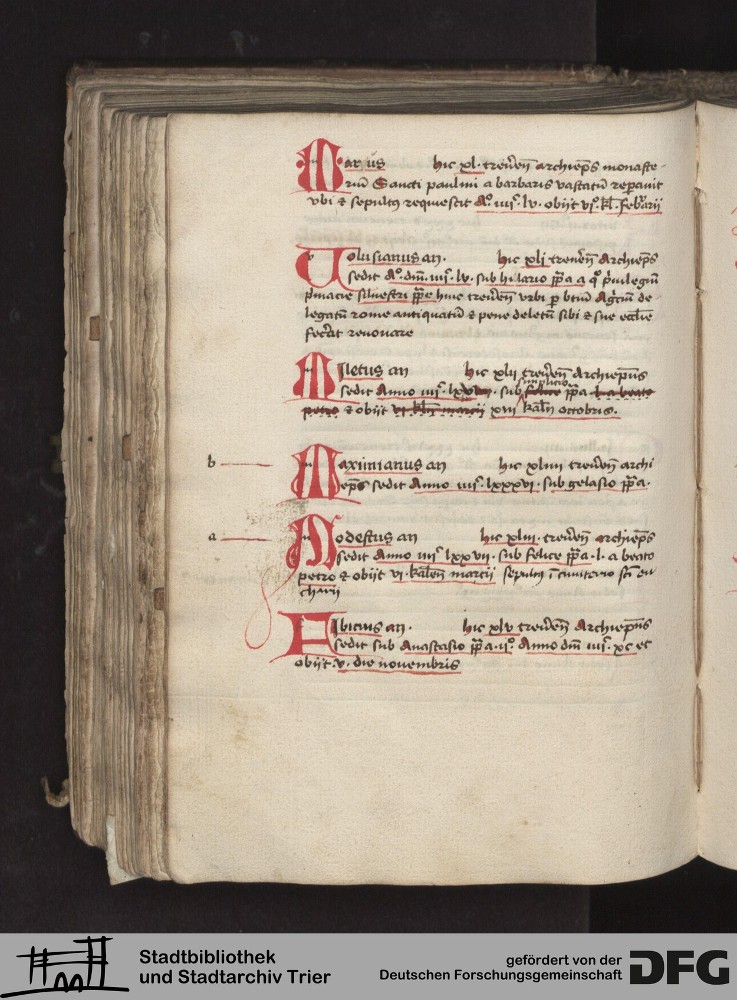 Marus hic xl. treverē archiep̄s monaste-
riū Sancti paulini a barbaris vastatū reparavit
vbi ⁊ sepultꝯ requiescit A°. iiijᶜ. lv. obijt vj°. kl̄. febrarij
Volusianus an. hic xlj treverē Archiep̄s
sedit A°. dnī. iiijᶜ. lv. sub hilario pp̄a a qͦ p̍vilegiū
p̍macie silvestri pp̄e huic treverē vrbi ꝑ btm̄ Agͥciū de
legatū rome antiquatū ⁊ pene deletū sibi ⁊ sue eccl̄ie
fecͥat renovare
Miletus an hic xlij treverē Archiep̄us
simplicio
sedit Anno iiijᶜ. lxx. sub felice pp̄a l. a beato
petro ⁊ obijt vj kl̄n marcij xvij kal̄n octobris.
b Maximianus an hic xliiij treverē archi
ep̄s sedit Anno iiijᶜ. lxxxvi. sub gelasio pp̄a.
a Modestus an hic xliij. treverē archiep̄s
sedit Anno iiijᶜ lxxvij. sub felice pp̄a. l. a beato
petro ⁊ obijt vj. kalen̄ marcij sepultꝯ ī cimiterio scī eu
charij
Fibicius an. hic xlv treverē Archiep̄us
sedit sub Anastasio pp̄a. ij°. Anno dnī iiijᶜ. xc et
obijt. v. die novembris
Stadtbibliothek
und Stadtarchiv Trier
gefördert von der
Deutschen Forschungsgemeinschaft
DFG